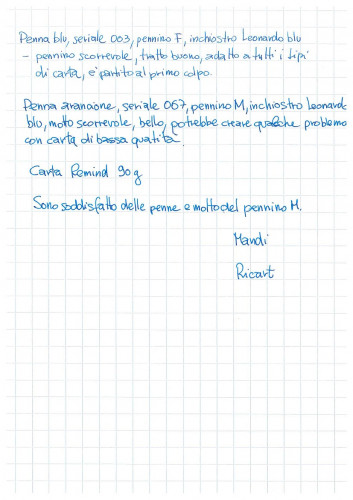 Penna blu, seriale 003, pennino F, inchiostro Leonardo blu
- pennino scorrevole, tratto buono, adatto a tutti i tipi
di carta, e' partito al primo colpo.
Penna arancione, seriale 067, pennino M, inchiostro Leonardo
blu, molto scorrevole, bello, potrebbe creare qualche problema
con carta di bassa qualità.
Carta Remind 90g
Sono soddisfatto delle penne e molto del pennino M.
Mandi
Ricart